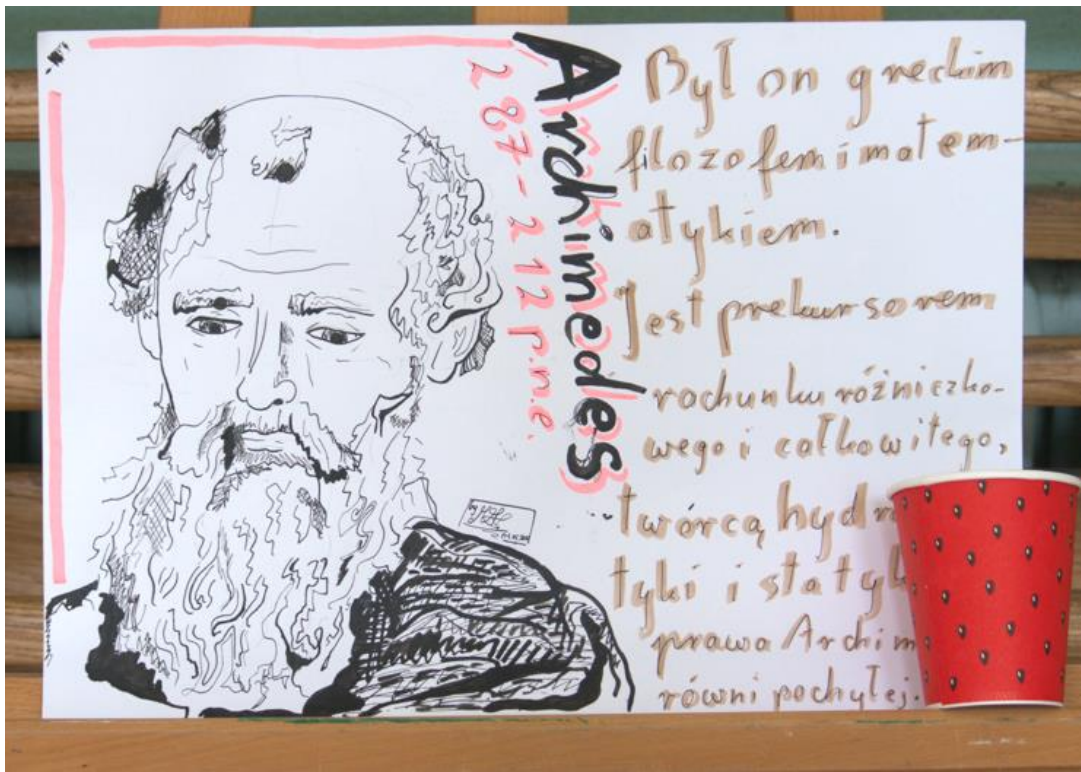 Archimedes
287-212 p.n.e.
Był on greckim
filozofem i matem-
atykiem.
Jest prekursorem
rachunku różniczko-
wego i całkowitego,
twórcą
tyki i
prawa
równi pochyłej.
by